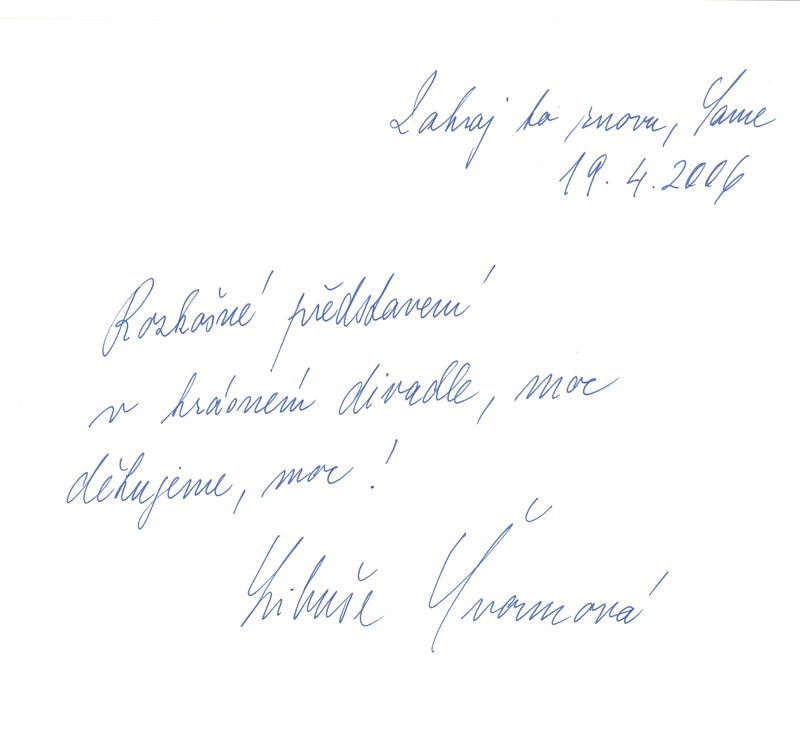 Zahraj to znovu, Same
19.4.2006
Rozkošné představení
v krásném divadle, moc
děkujeme, moc!
Libuše Švormová